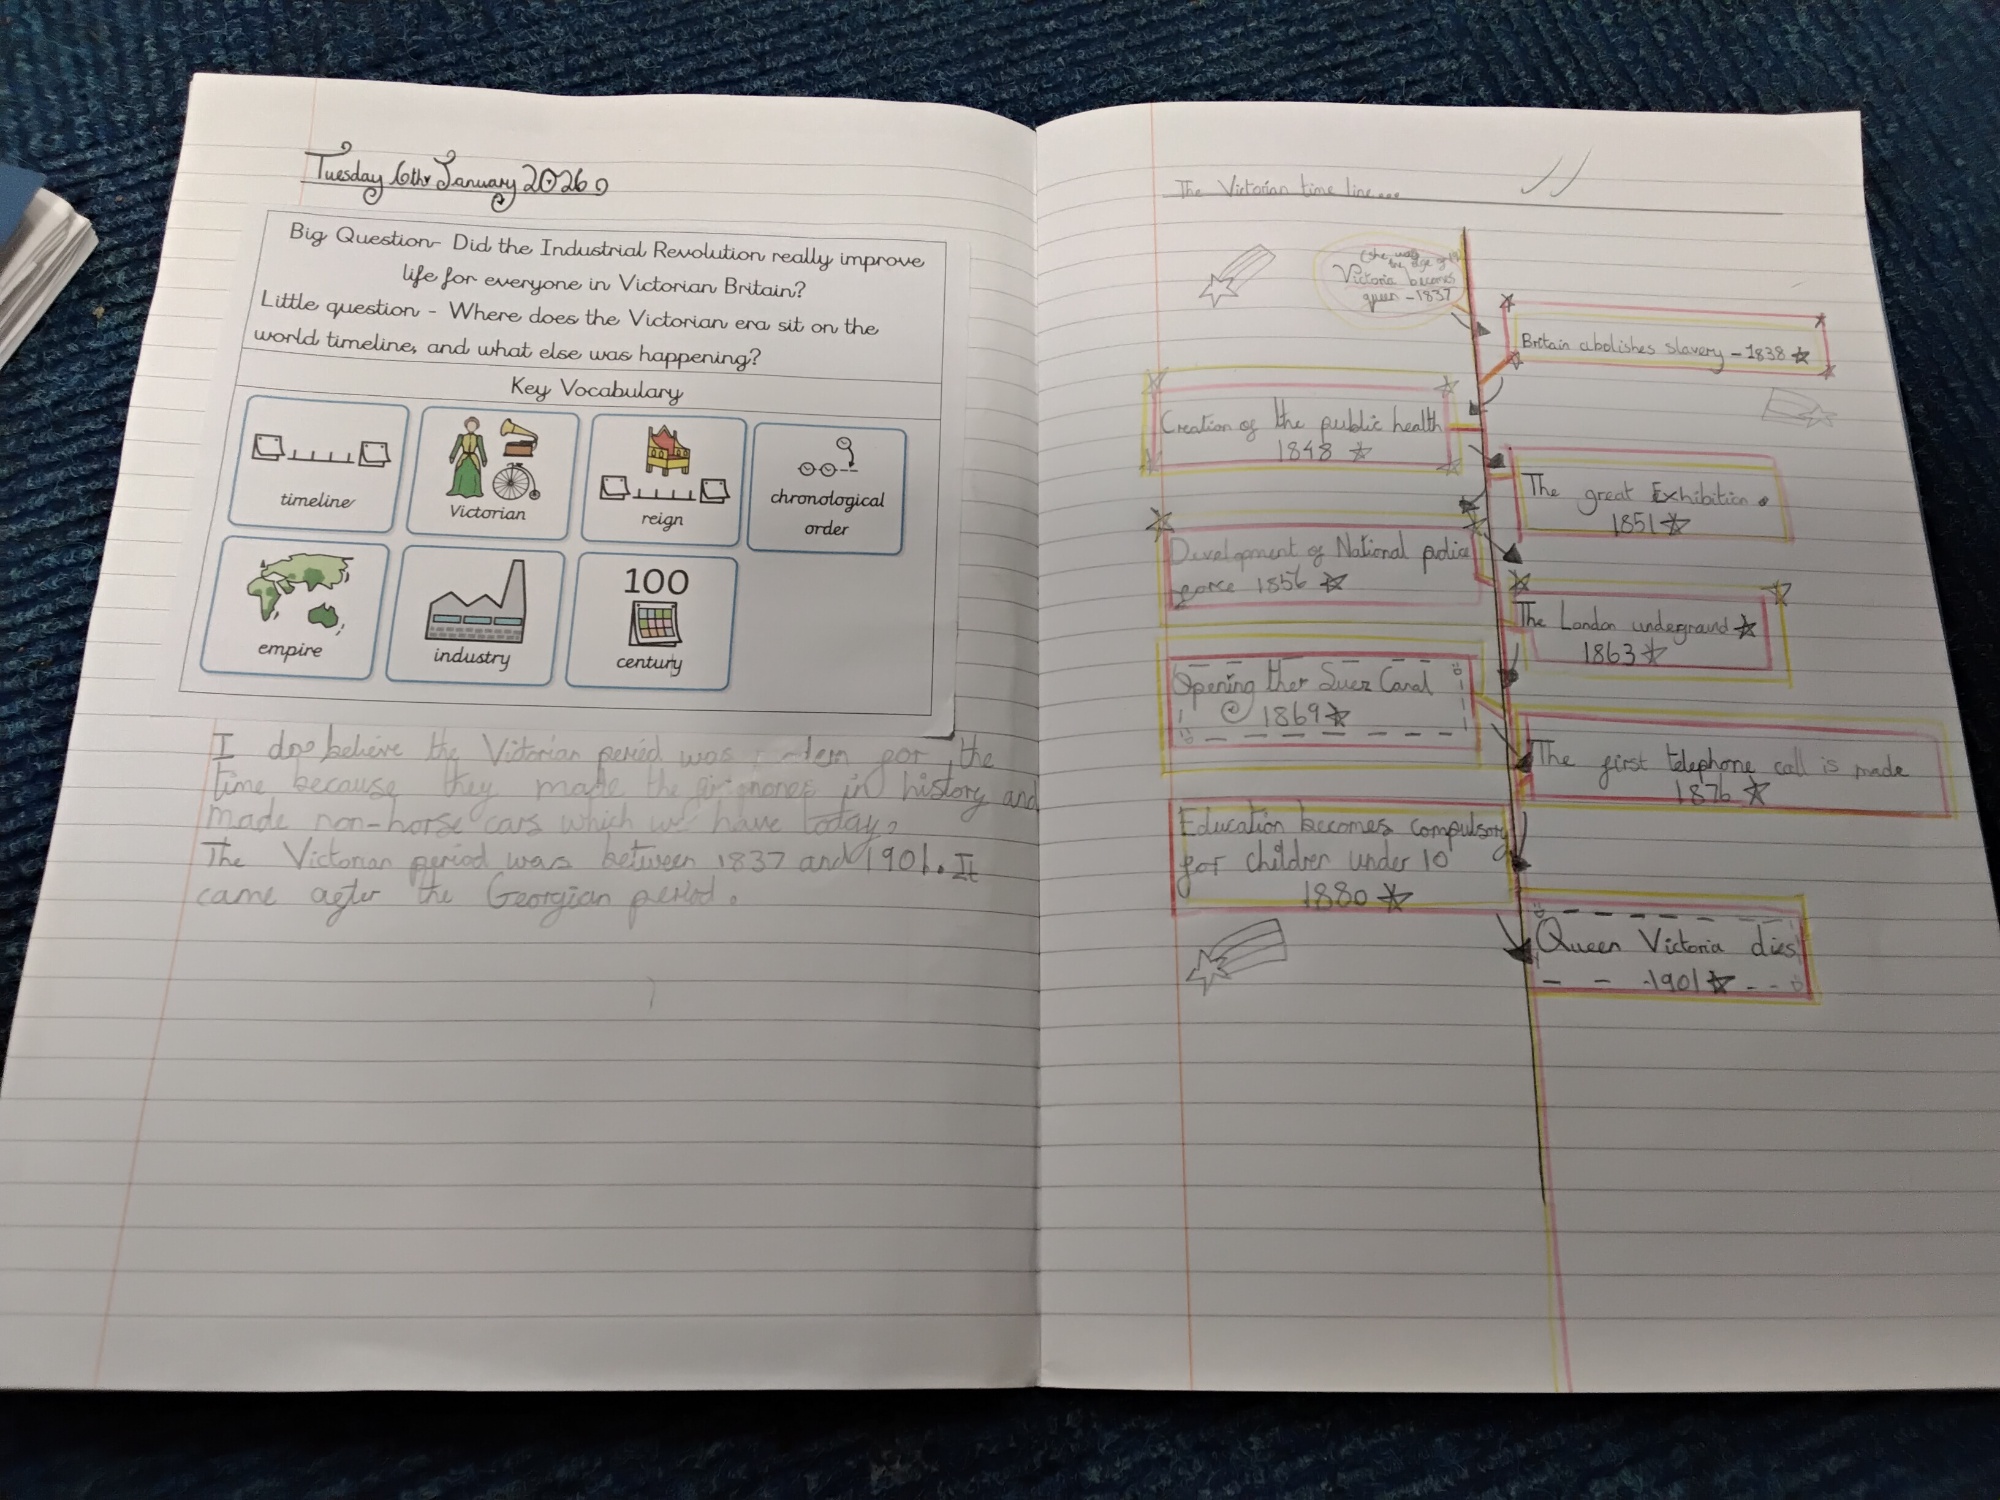 Tuesday 6th January 2026
Big Question- Did the Industrial Revolution really improve
life for everyone in Victorian Britain?
Little question - Where does the Victorian era sit on the
world timeline, and what else was happening?
Key Vocabulary
timeline
Victorian
reign
chronological
order
empire
industry
100
century
I do believe the Victorian period was for the
time because they made the in history and
made non-horse cars which we have today.
The Victorian period was between 1837 and 1901. It
came after the Georgian period.
The Victorian time line...
(she was
the age of
Victoria becomes
queen - 1837
Britain abolishes slavery - 1838
Creation of the public health
1848
The great Exhibition
1851
Development of National police
force 1856
The London underground
1863
Opening ther Suez Canal
1869
The first telephone call is made
1876
Education becomes compulsory
for children under 10
1880
Queen Victoria dies
1901